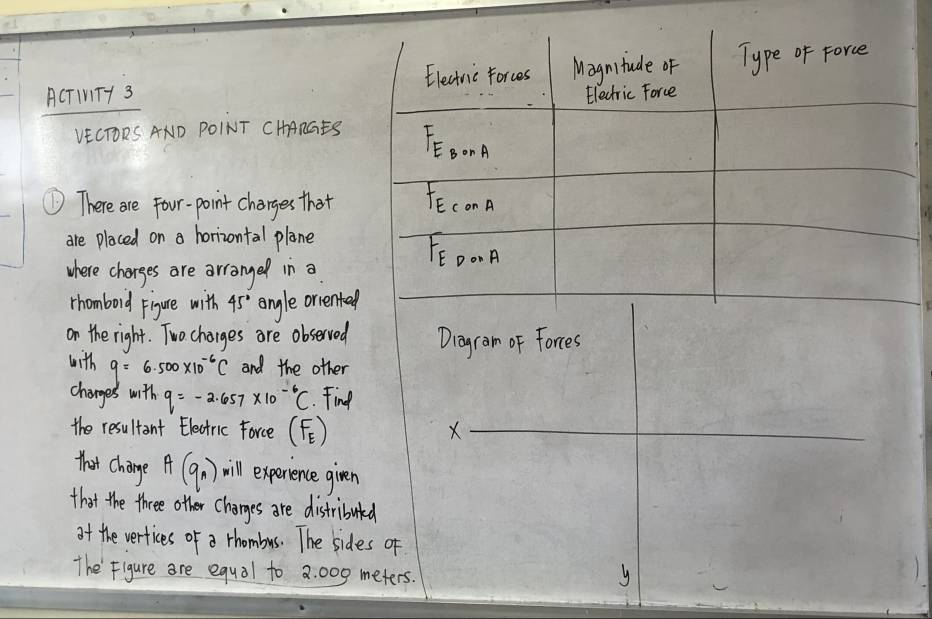 ACTIVITY 3
VECTORS AND POINT CHARGES
① There are four-point charges that
are placed on a horizontal plane
where charges are arranged in a
rhomboid figure with 45° angle oriented
on the right. Two charges are observed
with q = 6.500 x10⁻⁶C and the other
charges with q = -2.657 x 10⁻⁶C. Find
the resultant Electric Force (F_E)
that charge A (q_A) will experience given
that the three other charges are distributed
at the vertices of a rhombus. The sides of
the figure are equal to 2.000 meters.
Electric Forces
Magnitude of
Electric Force
Type of Force
F_E B on A
F_E C on A
F_E D on A
Diagram of Forces
X
y